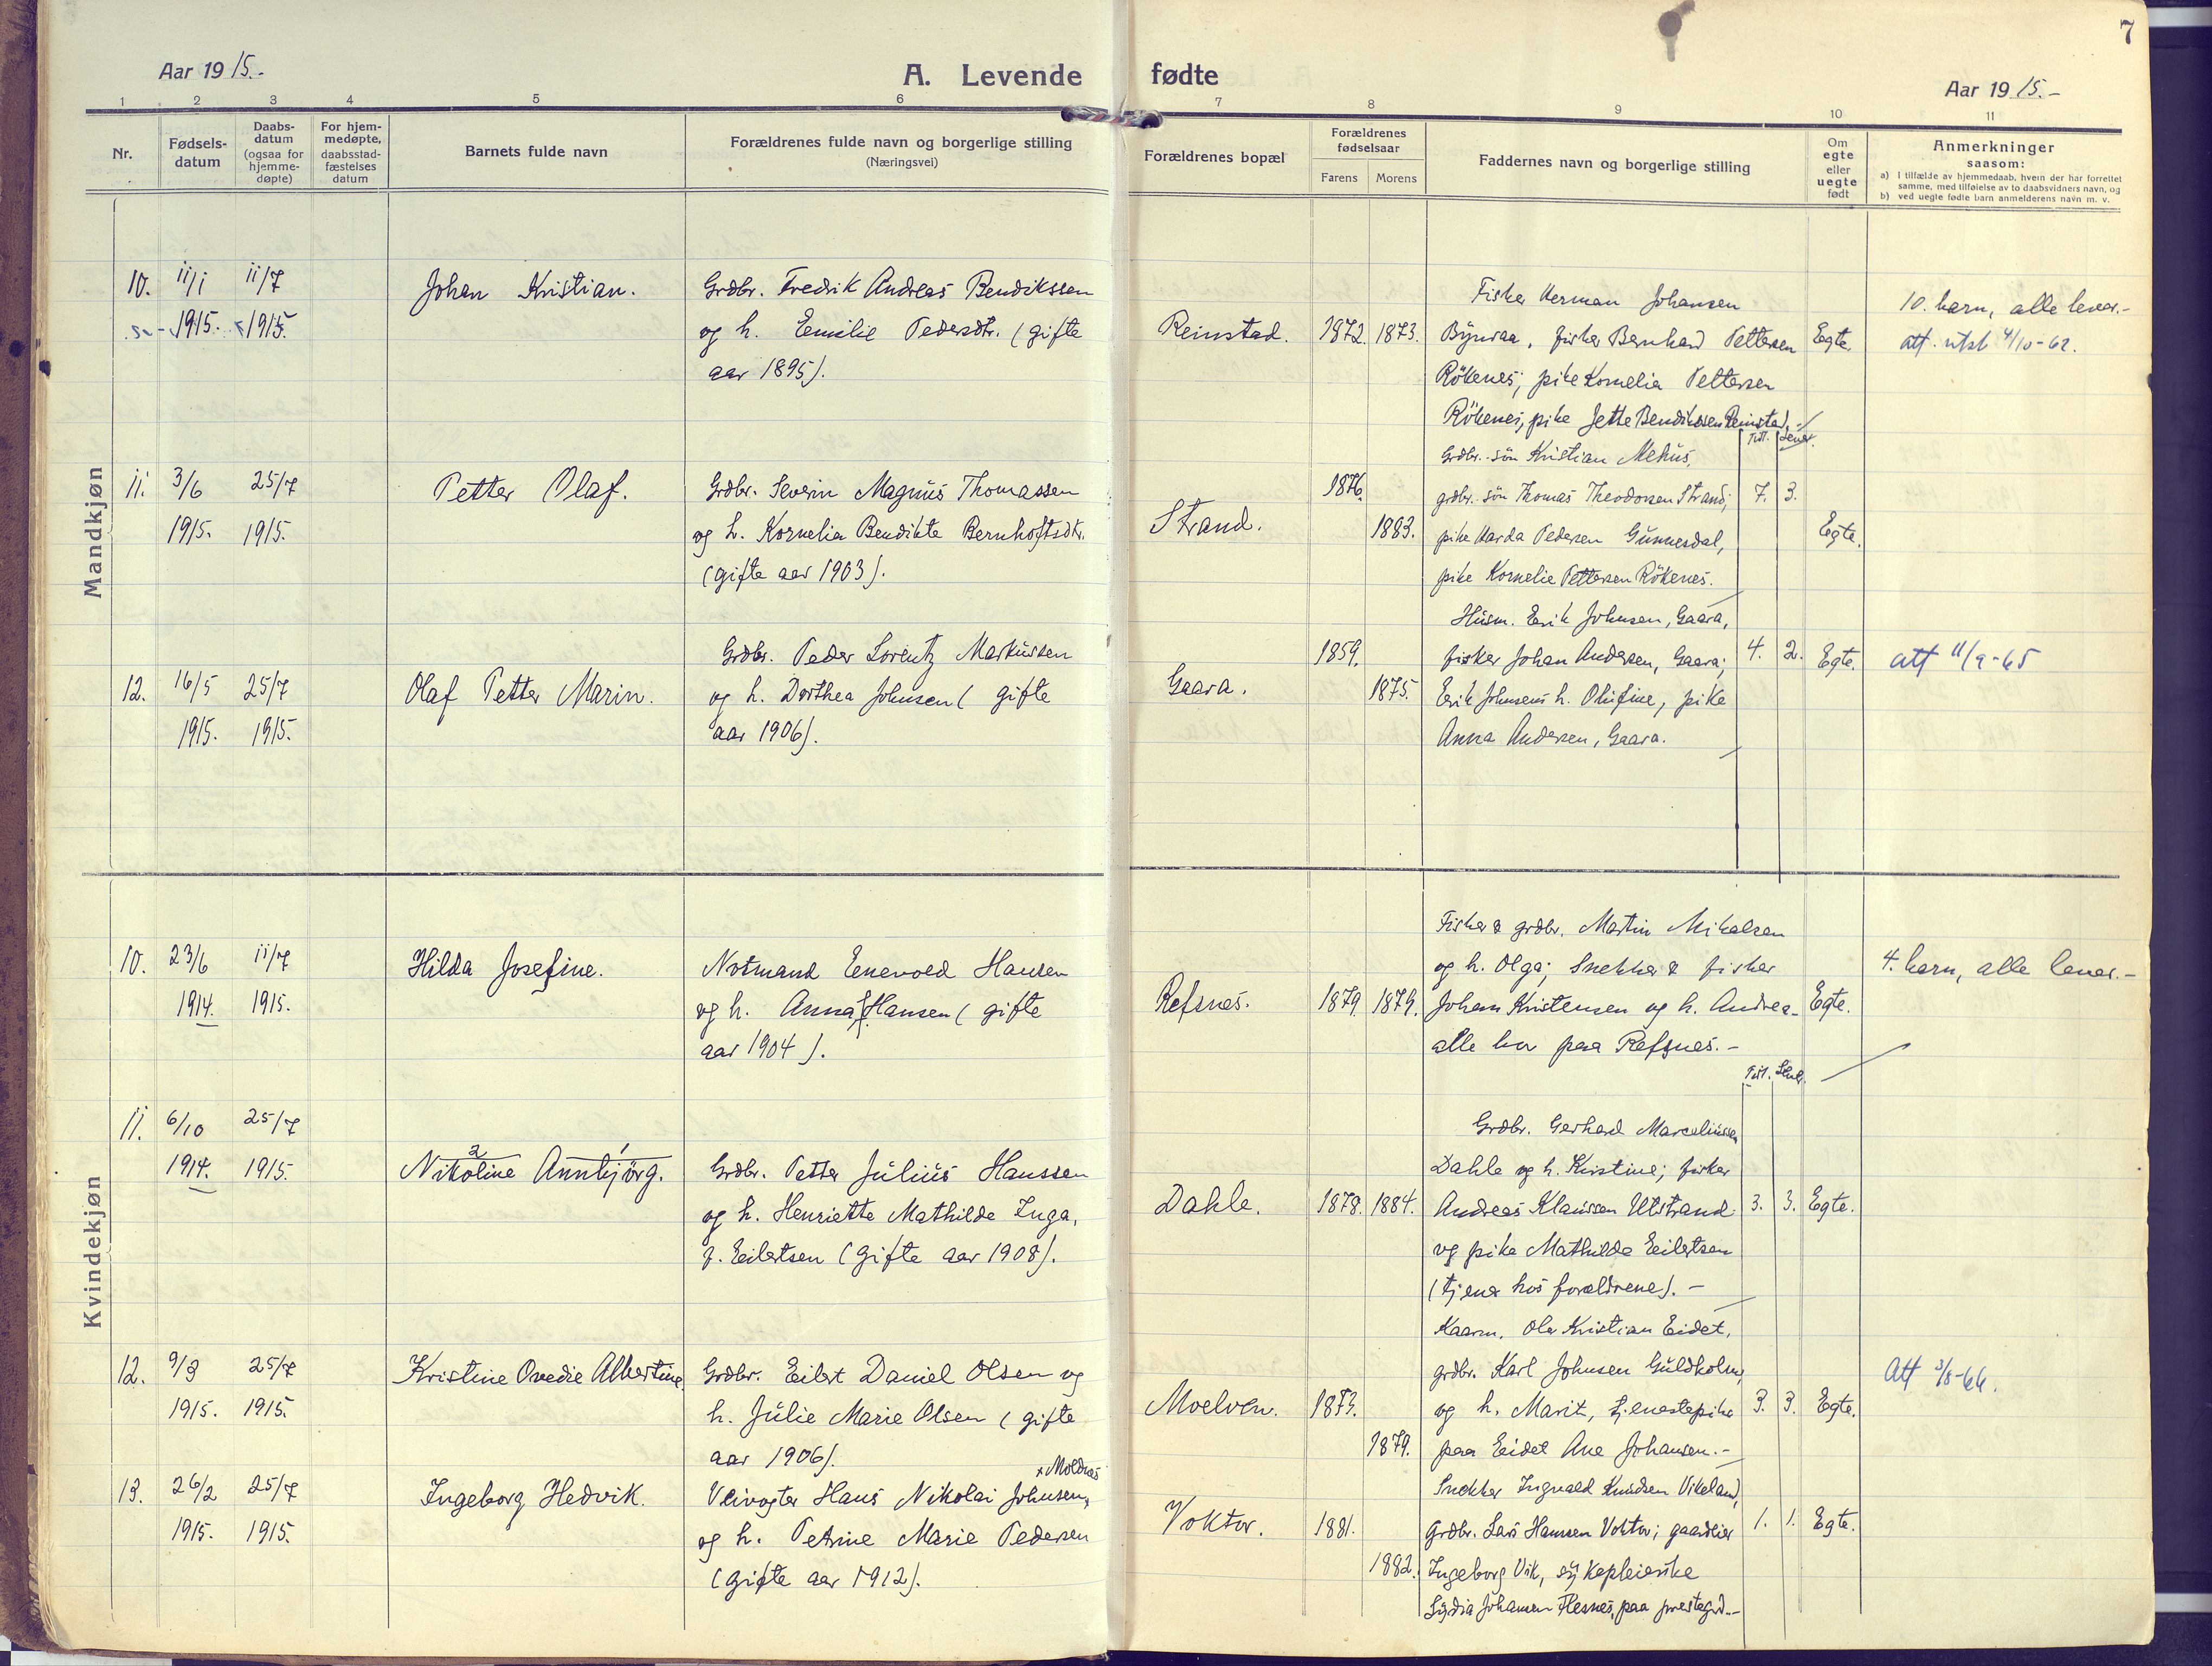 7
Aar 1915.-
A. Levende fødte
Aar 1915.-
1 2 3 4 5 6 7 8 9 10 11
Nr.
Fødsels-
datum
Daabs-
datum
(ogsaa for
hjemme-
døpte)
For hjem-
medøpte,
daabsstad-
fæstelses
datum
Barnets fulde navn
Forældrenes fulde navn og borgerlige stilling
(Næringsvei)
Forældrenes bopæl
Forældrenes
fødselsaar
Farens Morens
Faddernes navn og borgerlige stilling
Om
egte
eller
uegte
født
Anmerkninger
saasom:
a) I tilfælde av hjemmedaab, hvem der har forrettet
samme, med tilføielse av to daabsvidners navn, og
b) ved uegte fødte barn anmelderens navn m. v.
Mandkjøn
10. 11/1 11/7
1915. 1915.
Johan Kristian.
Grdbr. Fredrik Andreas Bendikssen
og h. Emilie Pedersdtr. (gifte
aar 1895).
Reinstad. 1872. 1873.
Fisker Herman Johansen
Bynraa, fisker Bernhard Pettersen
Rökenes; pike Kornelia Pettersen
Rökenes, pike Jette Bendiksen Reinstad.-
Egte.
10. barn, alle lever.-
att. utst. 4/10-62.
Født. Lever.
11. 3/6 25/7
1915. 1915.
Petter Olaf.
Grdbr. Severin Magnus Thomassen
og h. Kornelia Bendikte Bernhoftsdtr.
(gifte aar 1903).
Strand. 1876. 1883.
Grdbr.-sön Kristian Mehus,
grdbr. sön Thomas Theodorsen Strand;
pike Harda Pedersen Gunnesdal,
pike Kornelie Pettersen Rökenes.
7. 3. Egte.
12. 16/5 25/7
1915. 1915.
Olaf Petter Marin.
Grdbr. Peder Lorentz Markussen
og h. Dorthea Johnsen (gifte
aar 1906).
Gaara. 1859. 1875.
Husm. Erik Johnsen, Gaara,
fisker Johan Andersen, Gaara;
Erik Johnsens h. Olufine, pike
Anna Andersen, Gaara.
4. 2. Egte.
att 11/9-65
Kvindekjøn
10. 23/6 11/7
1914. 1915.
Hilda Josefine.
Notmand Enevold Hansen
og h. Anna f. Hansen (gifte
aar 1904).
Refsnes. 1879. 1879.
Fisker & grdbr. Martin Mikalsen
og h. Olga; Snekker & fisker
Johan Kristensen og h. Andrea-
alle bor paa Refsnes.-
Egte.
4. barn, alle lever.-
Født. Lever.
11. 6/10 25/7
1914. 1915.
2 1
Nikoline Annbjörg.
Grdbr. Petter Julius Hanssen
og h. Henriette Mathilde Inga,
f. Eilertsen (gifte aar 1908).
Dahle. 1878. 1884.
Grdbr. Gerhard Marceliussen
Dahle og h. Kristine; fisker
Andreas Klaussen Utstrand
og pike Mathilde Eilertsen
(tjener hos forældrene).-
3. 3. Egte.
12. 9/3 25/7
1915. 1915.
Kristine Ovedie Albertine.
Grdbr. Eilert Daniel Olsen og
h. Julie Marie Olsen (gifte
aar 1906).
Moelven. 1873. 1879.
Kaarm. Ole Kristian Eidet,
grdbr. Karl Johnsen Guldholm,
og h. Marit, tjenestepike
paa Eidet Ane Johansen.-
3. 3. Egte.
Att 3/8-66.
13. 26/2 25/7
1915. 1915.
Ingeborg Hedvik.
x Moldnæs
Veivogter Hans Nikolai Johnsen,
og h. Petrine Marie Pedersen
(gifte aar 1912).
Voktor. 1881. 1882.
Snekker Ingvald Knudsen Vikeland,
Grdbr. Lars Hansen Voktor; gaardeier
Ingeborg Vik, sykepleierske
Lydia Johansen Flesnes, paa prestegrd.-
1. 1. Egte.